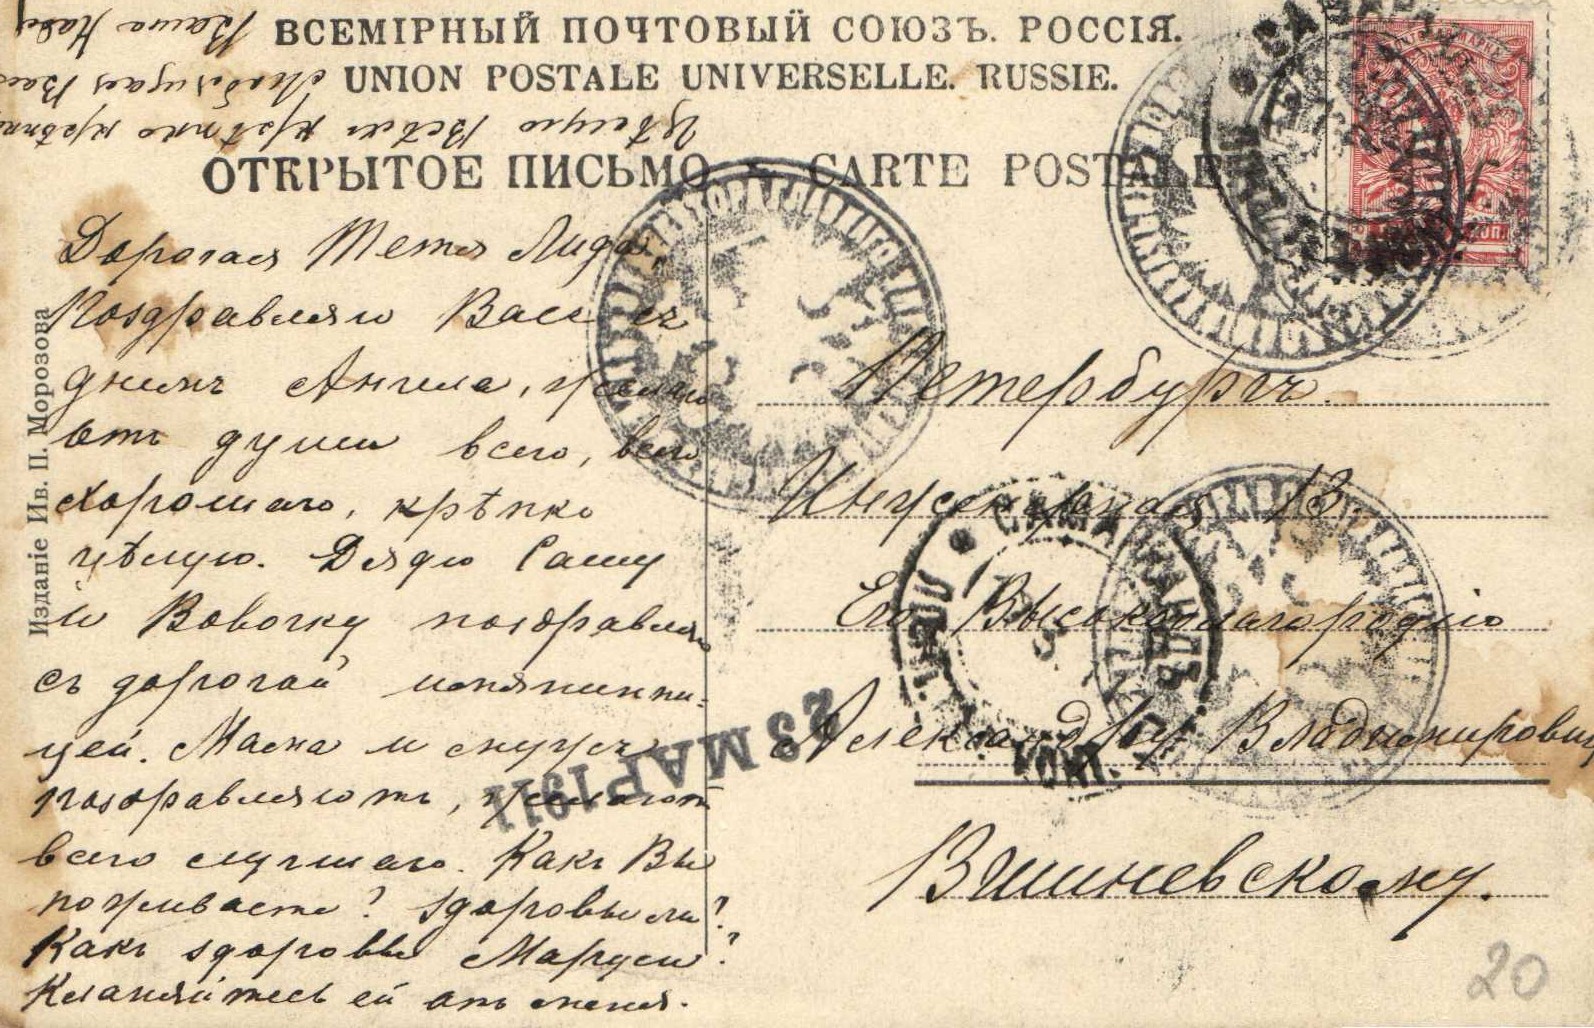 ВСЕМІРНЫЙ ПОЧТОВЫЙ СОЮЗЪ. РОССІЯ.
UNION POSTALE UNIVERSELLE. RUSSIE.
ОТКРЫТОЕ ПИСЬМО CARTE POSTALE
Дорогая Тетя Лида,
Поздравляю Васъ съ
днемъ Ангела, желаю
отъ души всего, всего
хорошаго, крѣпко
цѣлую. Дядю Сашу
и Вовочку поздравляю
съ дорогой имянинни-
цей. Мама и мужъ
поздравляютъ, желаютъ
всего лучшаго. Какъ Вы
поживаете? здоровы ли?
Какъ здоровье Маруси?
Кланяйтесь ей отъ меня.
Цѣлую Всѣхъ крѣпко крѣпко
Любящая Вас
Ваша
Петербургъ.
Инженерная 13.
Его Высокоблагородію
Александру Владимирович
Вишневскому.
Изданіе Ив. П. Морозова
23 МАР 1911
20